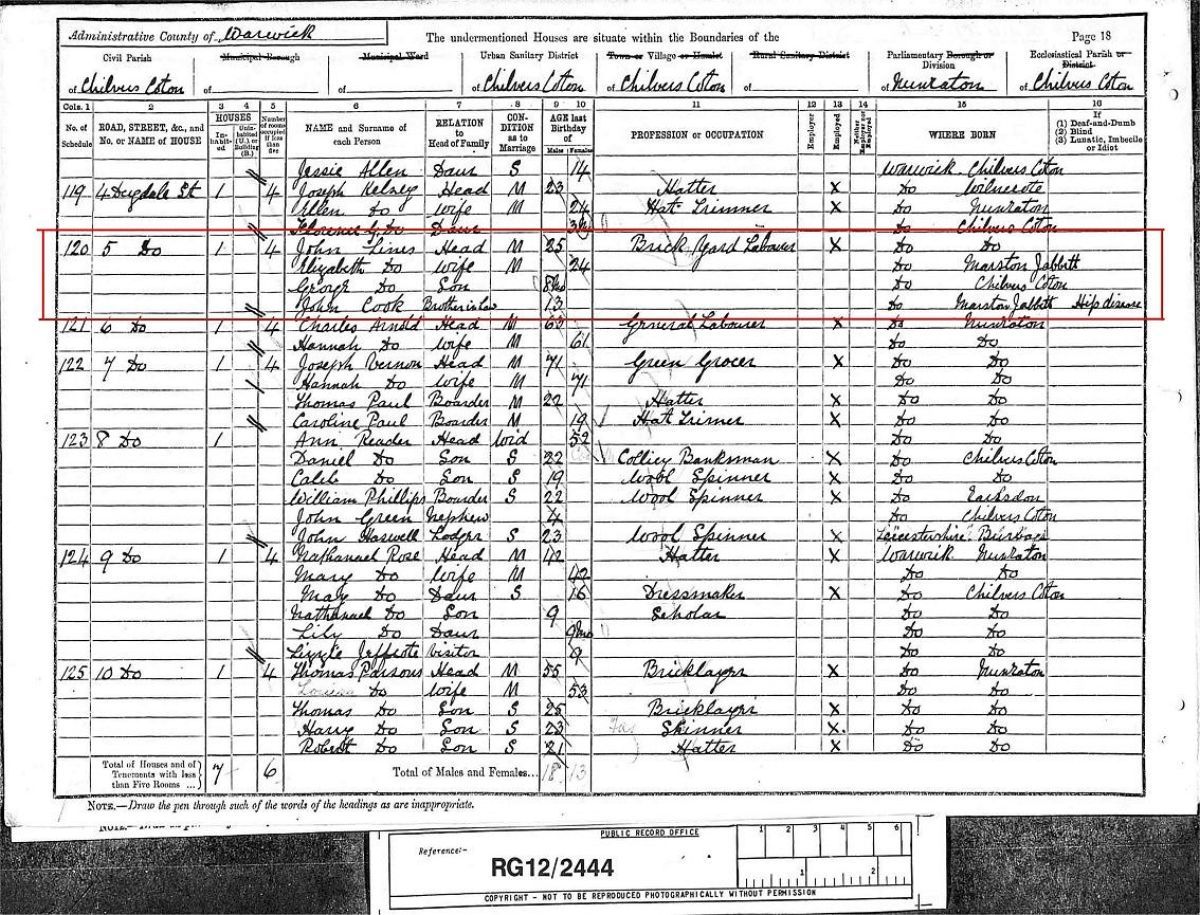 Administrative County of Warwick
The undermentioned Houses are situate within the Boundaries of the
Page 18
Civil Parish of Chilvers Coton
Municipal Borough of
Municipal Ward of
Urban Sanitary District of Chilvers Coton
Town or Village or Hamlet of Chilvers Coton
Rural Sanitary District of
Parliamentary Borough or Division of Nuneaton
Ecclesiastical Parish or District of Chilvers Coton
Cols. 1 2 3 4 5 6 7 8 9 10 11 12 13 14 15 16
No. of Schedule
ROAD, STREET, &c., and No. or NAME of HOUSE
HOUSES
In-habit-ed
Unin-habited (U.) or Building (B.)
Number of rooms occupied if less than five
NAME and Surname of each Person
RELATION to Head of Family
CON-DITION as to Marriage
AGE last Birthday of
Males Females
PROFESSION or OCCUPATION
Employer
Employed
Neither Employer nor Employed
WHERE BORN
If
(1) Deaf-and-Dumb
(2) Blind
(3) Lunatic, Imbecile or Idiot
Jessie Allen Daur S 14 Warwick Chilvers Coton
119 4 Dugdale St 1 4 Joseph Kelsey Head M 23 Hatter X Do Wilnecote
Ellen Do Wife M 24 Hat Trimmer X Do Nuneaton
Florence G. Do Daur Do Chilvers Coton
120 5 Do 1 4 John Lines Head M 25 Brick Yard Labourer X Do Do
Elizabeth Do Wife M 24 Do Marston Jabbett
George Do Son 8mo Do Chilvers Coton
John Cook Brother in Law 13 Do Marston Jabbett Hip disease
121 6 Do 1 4 Charles Arnold Head M 63 General Labourer X Do Nuneaton
Hannah Do Wife M 61 Do Do
122 7 Do 1 4 Joseph Vernon Head M 71 Green Grocer X Do Do
Hannah Do Wife M 71 Do Do
Thomas Paul Boarder M 22 Hatter X Do Do
Caroline Paul Boarder M 19 Hat Trimer X Do Do
123 8 Do 1 Ann Reader Head Wid 52 Do Do
Daniel Do Son S 22 Colliey Banksman X Do Chilvers Coton
Caleb Do Son S 19 Wool Spinner X Do Do
William Phillips Boarder S 22 Wool Spinner X Do
John Green Nephew 4 Do Chilvers Coton
John Haswell Lodger S 23 Wool Spinner X Leicestershire
124 9 Do 1 4 Nathanael Rose Head M 42 Hatter X Warwick Nuneaton
Mary Do Wife M 42 Do Do
May Do Daur S 16 Dressmaker X Do Chilvers Coton
Nathanael Do Son 9 Scholar Do Do
Lily Do Daur 9mo Do Do
Lizzie Visitor 9 Do Do
125 10 Do 1 4 Thomas Parsons Head M 55 Bricklayer X Do Nuneaton
Louisa Do Wife M 53 Do Do
Thomas Do Son S 25 Bricklayer X Do Do
Harry Do Son S 23 Skinner X. Do Do
Robert Do Son S 21 Hatter X Do Do
Total of Houses and of Tenements with less than Five Rooms ... 7 6
Total of Males and Females... 18 13
NOTE.—Draw the pen through such of the words of the headings as are inappropriate.
PUBLIC RECORD OFFICE
1 2 3 4 5 6
Reference:-
RG12/2444
1 2
COPYRIGHT - NOT TO BE REPRODUCED PHOTOGRAPHICALLY WITHOUT PERMISSION